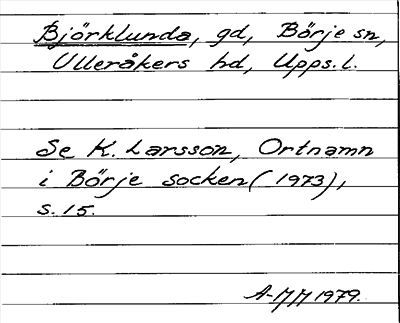 Björklunda, gd, Börje sn,
Ulleråkers hd, Upps. l.
Se K. Larsson, Ortnamn
i Börje socken (1973),
s. 15.
A-MM 1979.